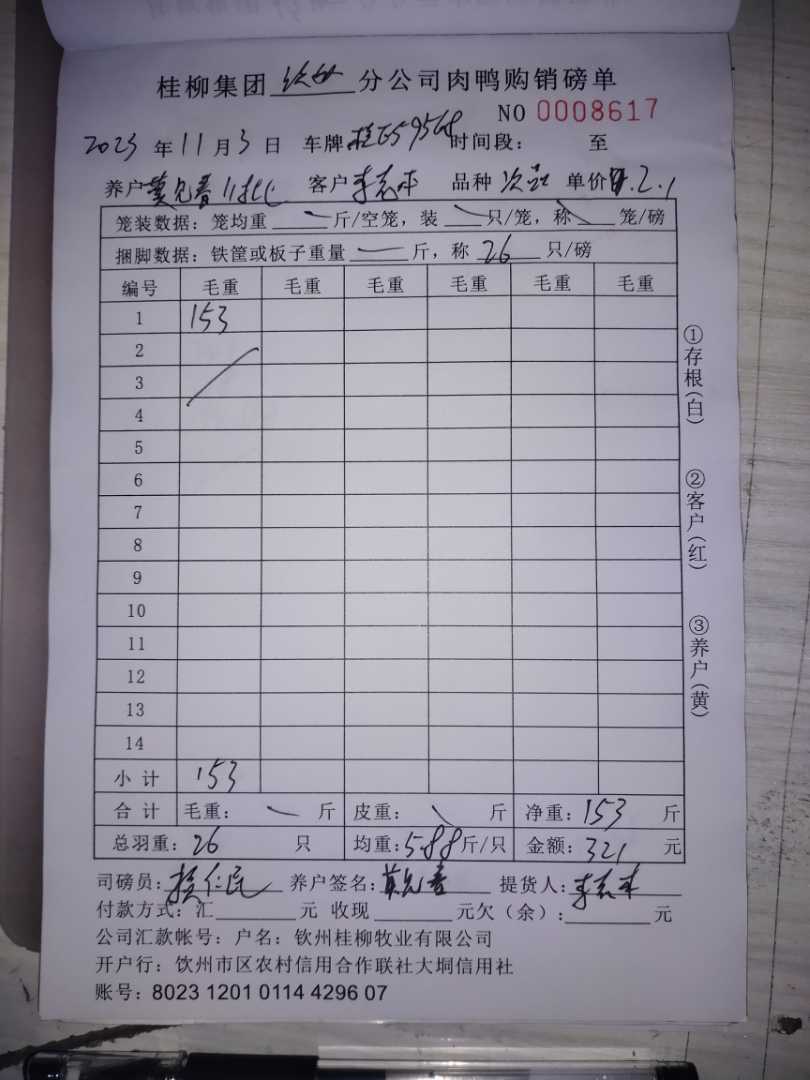 桂柳集团 钦州 分公司肉鸭购销磅单
NO 0008617
2023 年 11 月 3 日 车牌 时间段： 至
养户 客户 品种 次 单价 2.1
笼装数据：笼均重 斤/空笼，装 只/笼，称 笼/磅
捆脚数据：铁筐或板子重量 斤，称 26 只/磅
编号 毛重 毛重 毛重 毛重 毛重 毛重
1 153
2
3
4
5
6
7
8
9
10
11
12
13
14
小计 153
合计 毛重： 斤 皮重： 斤 净重：153 斤
总羽重：26 只 均重：5.88 斤/只 金额：321 元
司磅员： 养户签名： 提货人：
付款方式：汇 元 收现 元欠（余）： 元
公司汇款帐号：户名：钦州桂柳牧业有限公司
开户行：饮州市区农村信用合作联社大垌信用社
账号：8023 1201 0114 4296 07
①存根（白）
②客户（红）
③养户（黄）